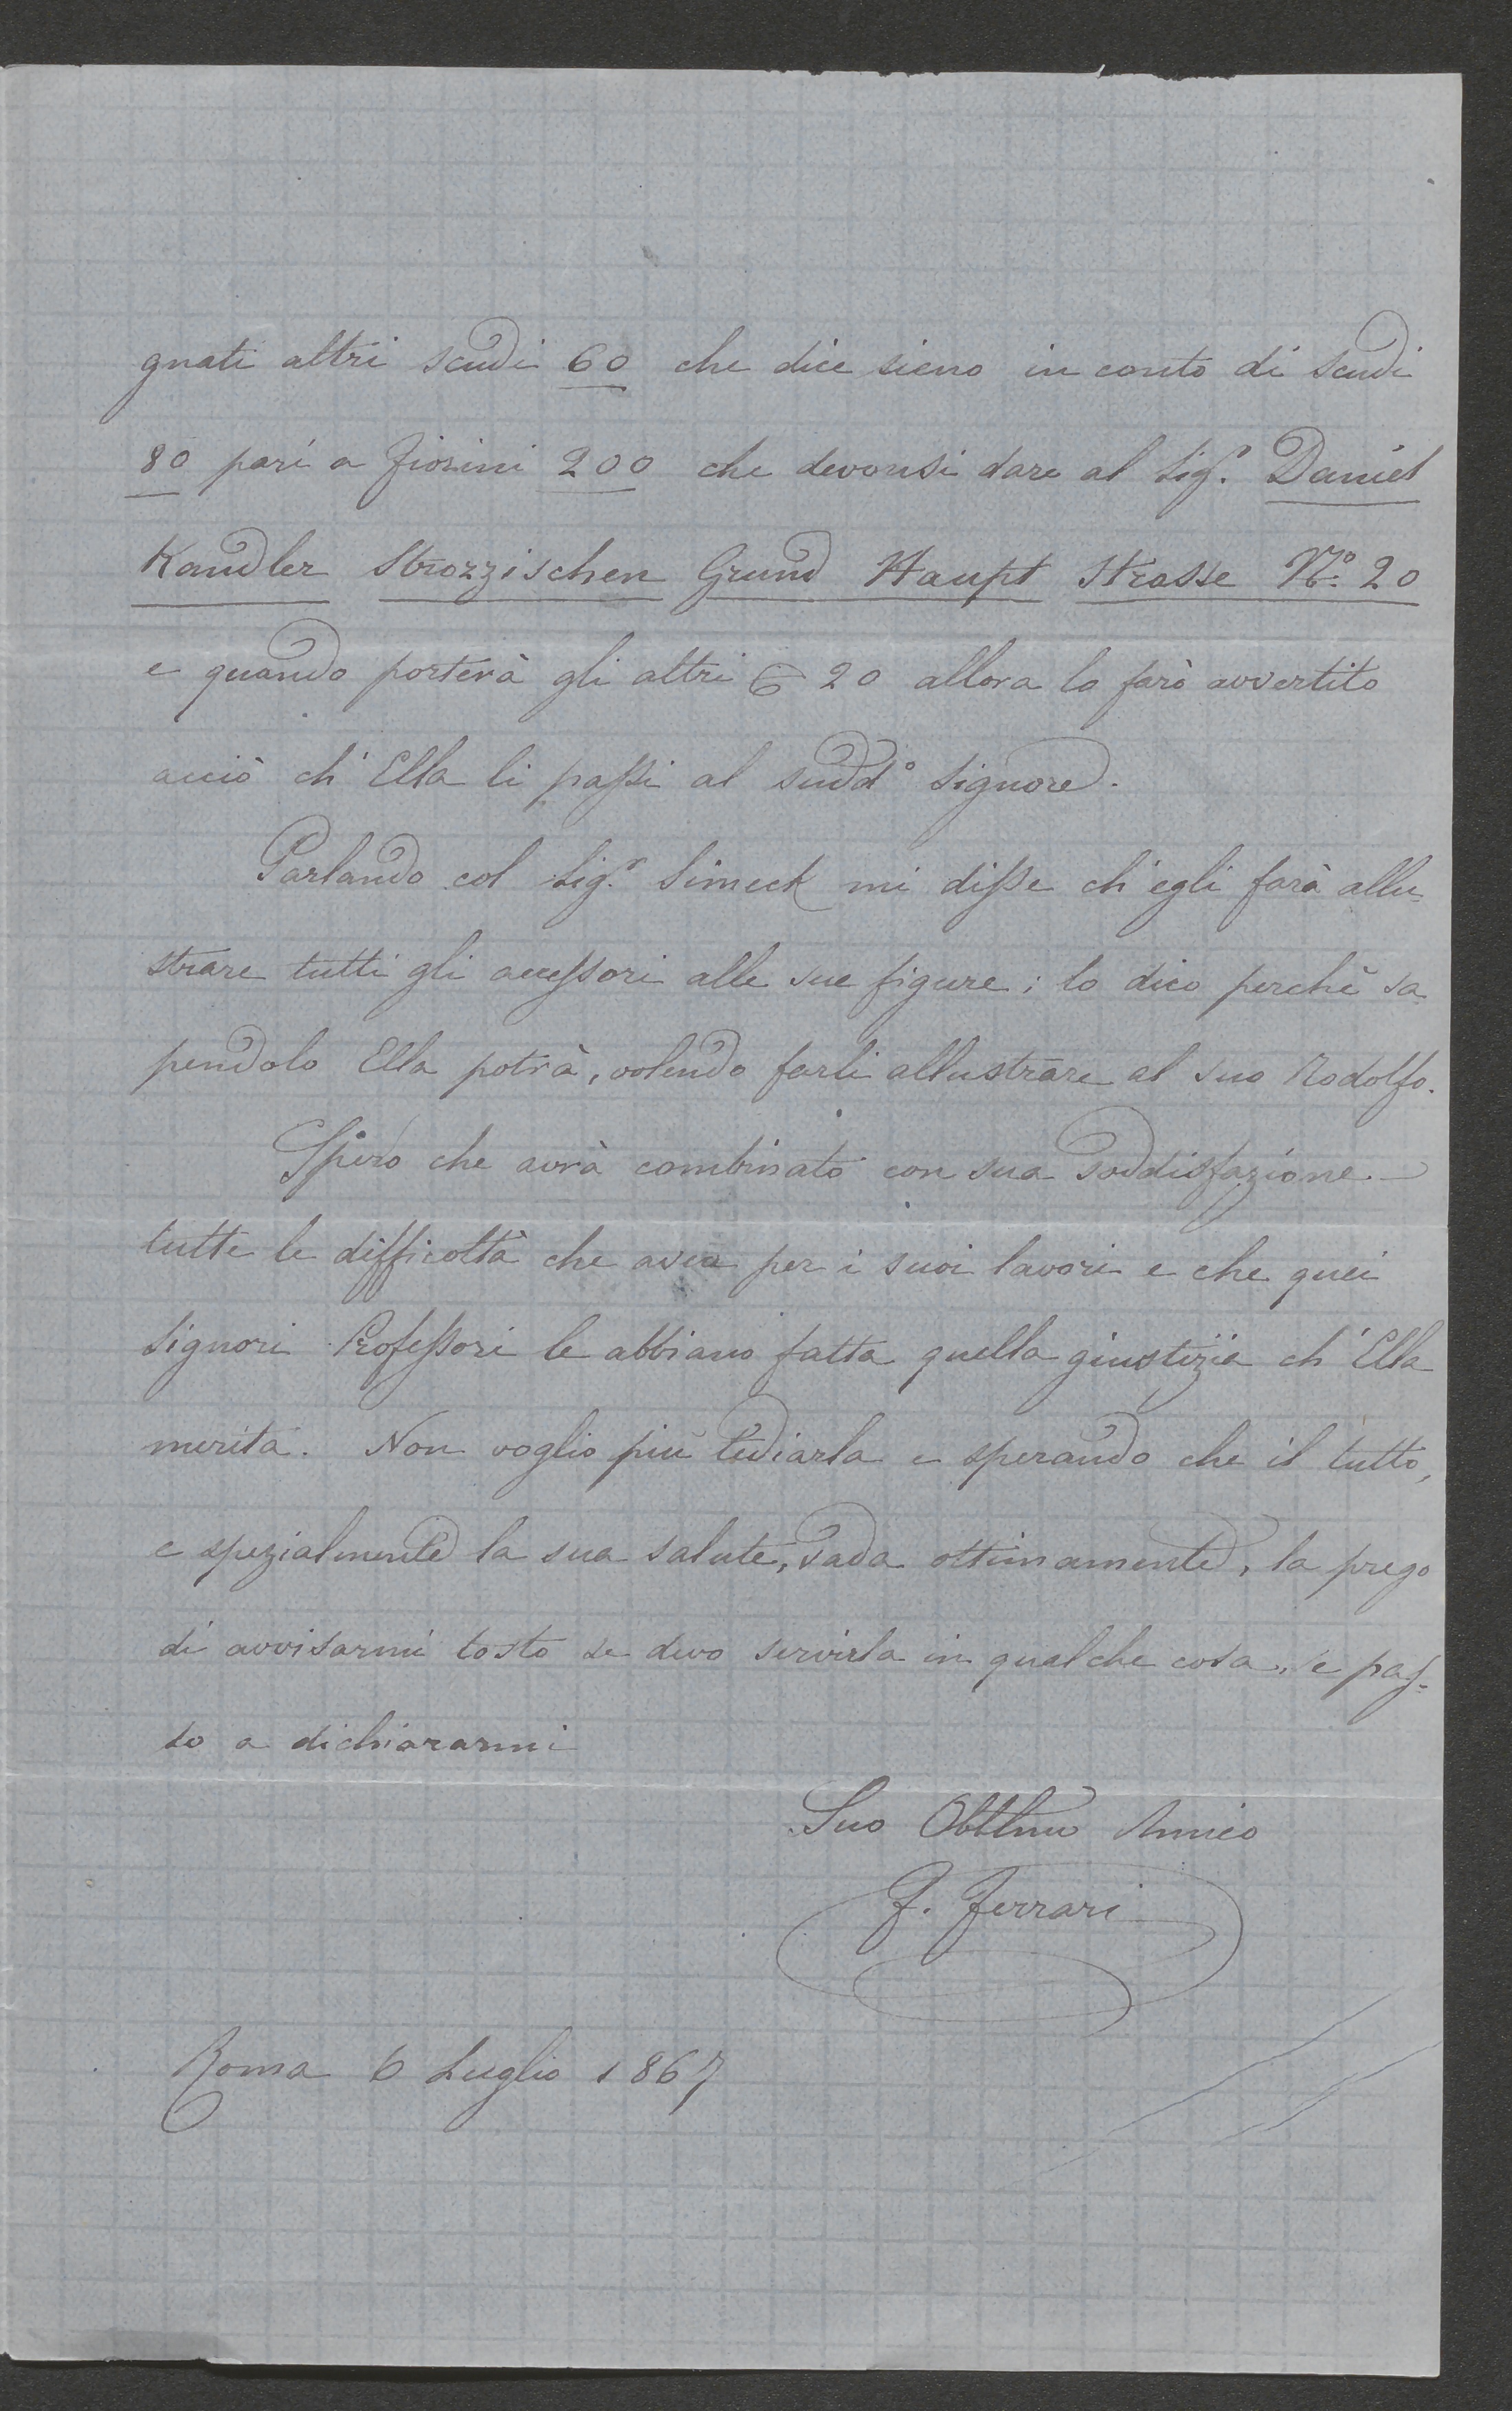 gnati altri scudi 60 che dice sieno in conto di scudi
80 pari a fiorini 200 che devonsi dare al Sigr. Daniel
Kandler Strozzischen Grund Haupt Strasse No. 20
e quando porterà gli altri 20 allora lo farò avvertito
acciò ch'Ella li passi al suddo Signore.
Parlando col Sigr. Simeck mi disse ch'egli farà allu-
strare tutti gli accessori alle sue figure; lo dico perchè sa
pendolo Ella potrà, volendo farli allustrare al suo Rodolfo.
Spero che avrà combinato con sua soddisfazione
tutte le difficoltà che avea per i suoi lavori e che quei
Signori Professori le abbiano fatta quella giustizia ch'Ella
merita. Non voglio più tediarla e sperando che il tutto,
e spezialmente la sua salute, vada ottimamente, la prego
di avvisarmi tosto se devo servirla in qualche cosa, e pas-
so a dichiararmi
Suo Obblmo Amico
F. Ferrari
Roma 6 Luglio 1867